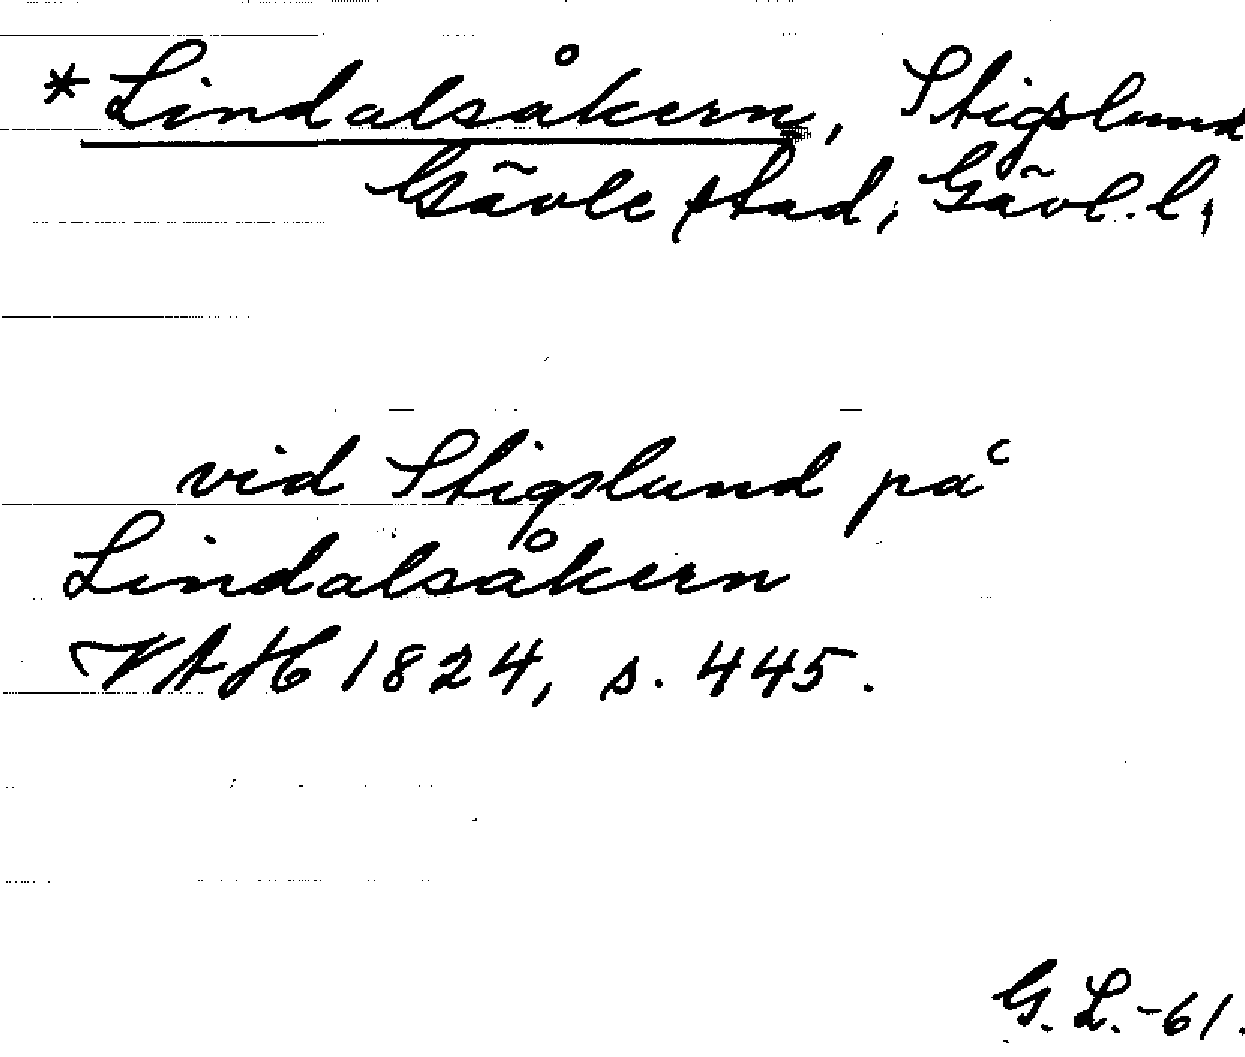 *Lindalsåkern, Stigslund
Gävle stad, Gävl. l,
vid Stigslund på
Lindalsåkern
VAH 1824, s. 445.
G. L. -61.